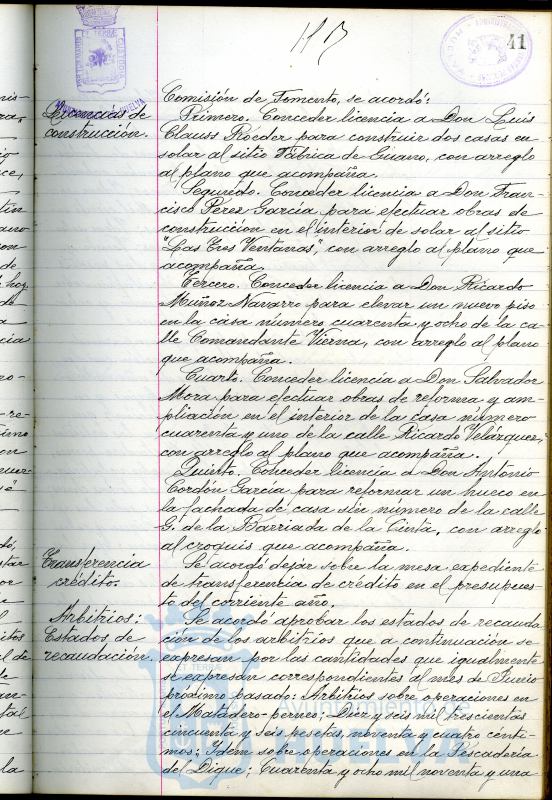 41
Comisión de Fomento, se acordó:
Licencias de
construcción.
Primero. Conceder licencia a Don Luis
Clauss Roeder para construir dos casas en
solar al sitio Fábrica de Guano, con arreglo
al plano que acompaña.
Segundo. Conceder licencia a Don Fran-
cisco Perez García para efectuar obras de
construcción en el interior de solar al sitio
"Las Tres Ventanas", con arreglo al plano que
acompaña.
Tercero. Conceder licencia a Don Ricardo
Muñoz Navarro para elevar un nuevo piso
en la casa número cuarenta y ocho de la ca-
lle Comandante Vierna, con arreglo al plano
que acompaña.
Cuarto. Conceder licencia a Don Salvador
Mora para efectuar obras de reforma y am-
pliación en el interior de la casa número
cuarenta y uno de la calle Ricardo Velázquez,
con arreglo al plano que acompaña.
Quinto. Conceder licencia a Don Antonio
Cordón García para reformar un hueco en
la fachada de casa sin número de la calle
G. de la Barriada de la Cinta, con arreglo
al croquis que acompaña.
Transferencia
crédito.
Se acordó dejar sobre la mesa expediente
de transferencia de crédito en el presupues-
to del corriente año.
Arbitrios:
Estados de
recaudación.
Se acordó aprobar los estados de recauda-
ción de los arbitrios que a continuación se
expresan por las cantidades que igualmente
se expresan correspondientes al mes de Junio
próximo pasado: Arbitrios sobre operaciones en
el Matadero-perneo; Diez y seis mil trescientas
cincuenta y seis pesetas, noventa y cuatro cénti-
mos; Idem sobre operaciones en la Pescadería
del Dique; Cuarenta y ocho mil noventa y una
Ayuntamiento de